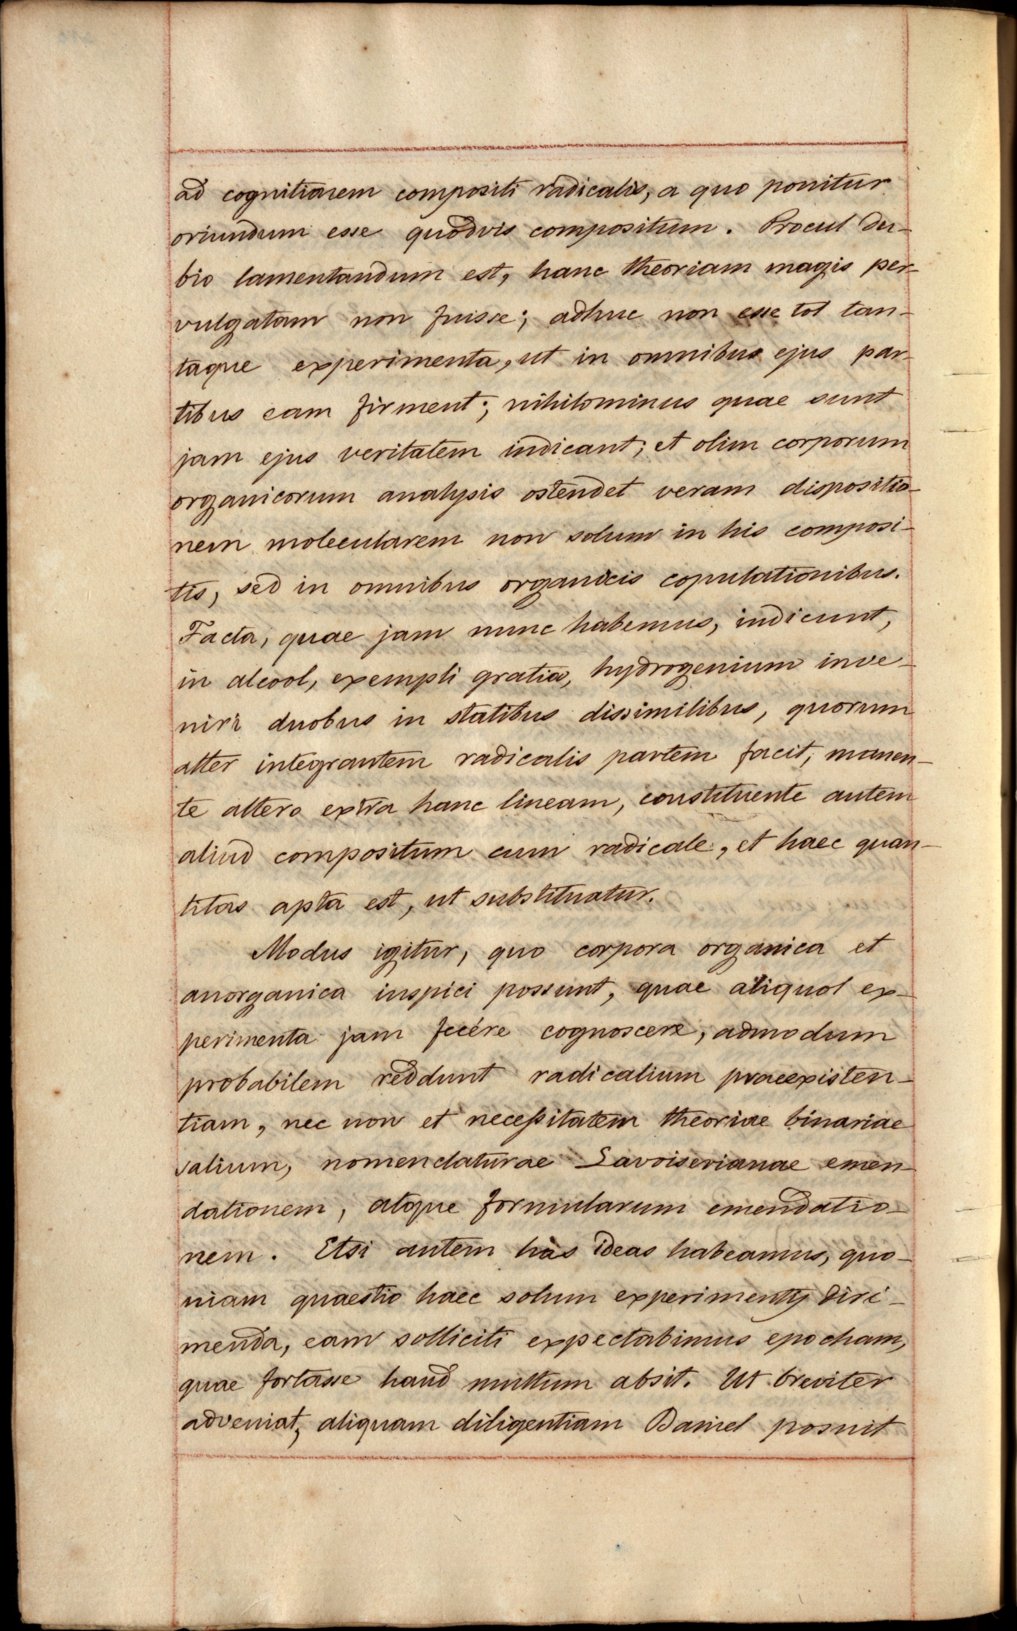 ad cognitionem compositi radicalis, a quo ponitur
oriundum esse quodvis compositum. Procul du-
bio lamentandum est, hanc theoriam magis per-
vulgatam non fuisse; adhuc non esse tot tan-
taque experimenta, ut in omnibus ejus par-
tibus eam firment; nihilominus quae sunt
jam ejus veritatem indicant; et olim corporum
organicorum analysis ostendet veram dispositio-
nem molecularem non solum in his composi-
tis, sed in omnibus organicis copulationibus.
Facta, quae jam nunc habemus, indicunt,
in alcool, exempli gratia, hydrogenium inve-
niri duobus in statibus dissimilibus, quorum
alter integrantem radicalis partem facit, manen-
te altero extra hanc lineam, constituente autem
aliud compositum cum radicale, et haec quan-
titas apta est, ut substituatur.
Modus igitur, quo corpora organica et
anorganica inspici possunt, quae aliquot ex-
perimenta jam fecére cognoscere, admodum
probabilem reddunt radicalium praeexisten-
tiam, nec non et necessitatem theoriae binariae
salium, nomenclaturae Lavoiserianae emen-
dationem, atque formularum emendatio-
nem. Etsi autem has ideas habeamus, quo-
niam quaestio haec solum experimentis diri-
menda, eam solliciti expectabimus epocham,
quae fortasse haud multum absit. Ut breviter
adveniat, aliquam diligentiam Daniel posuit